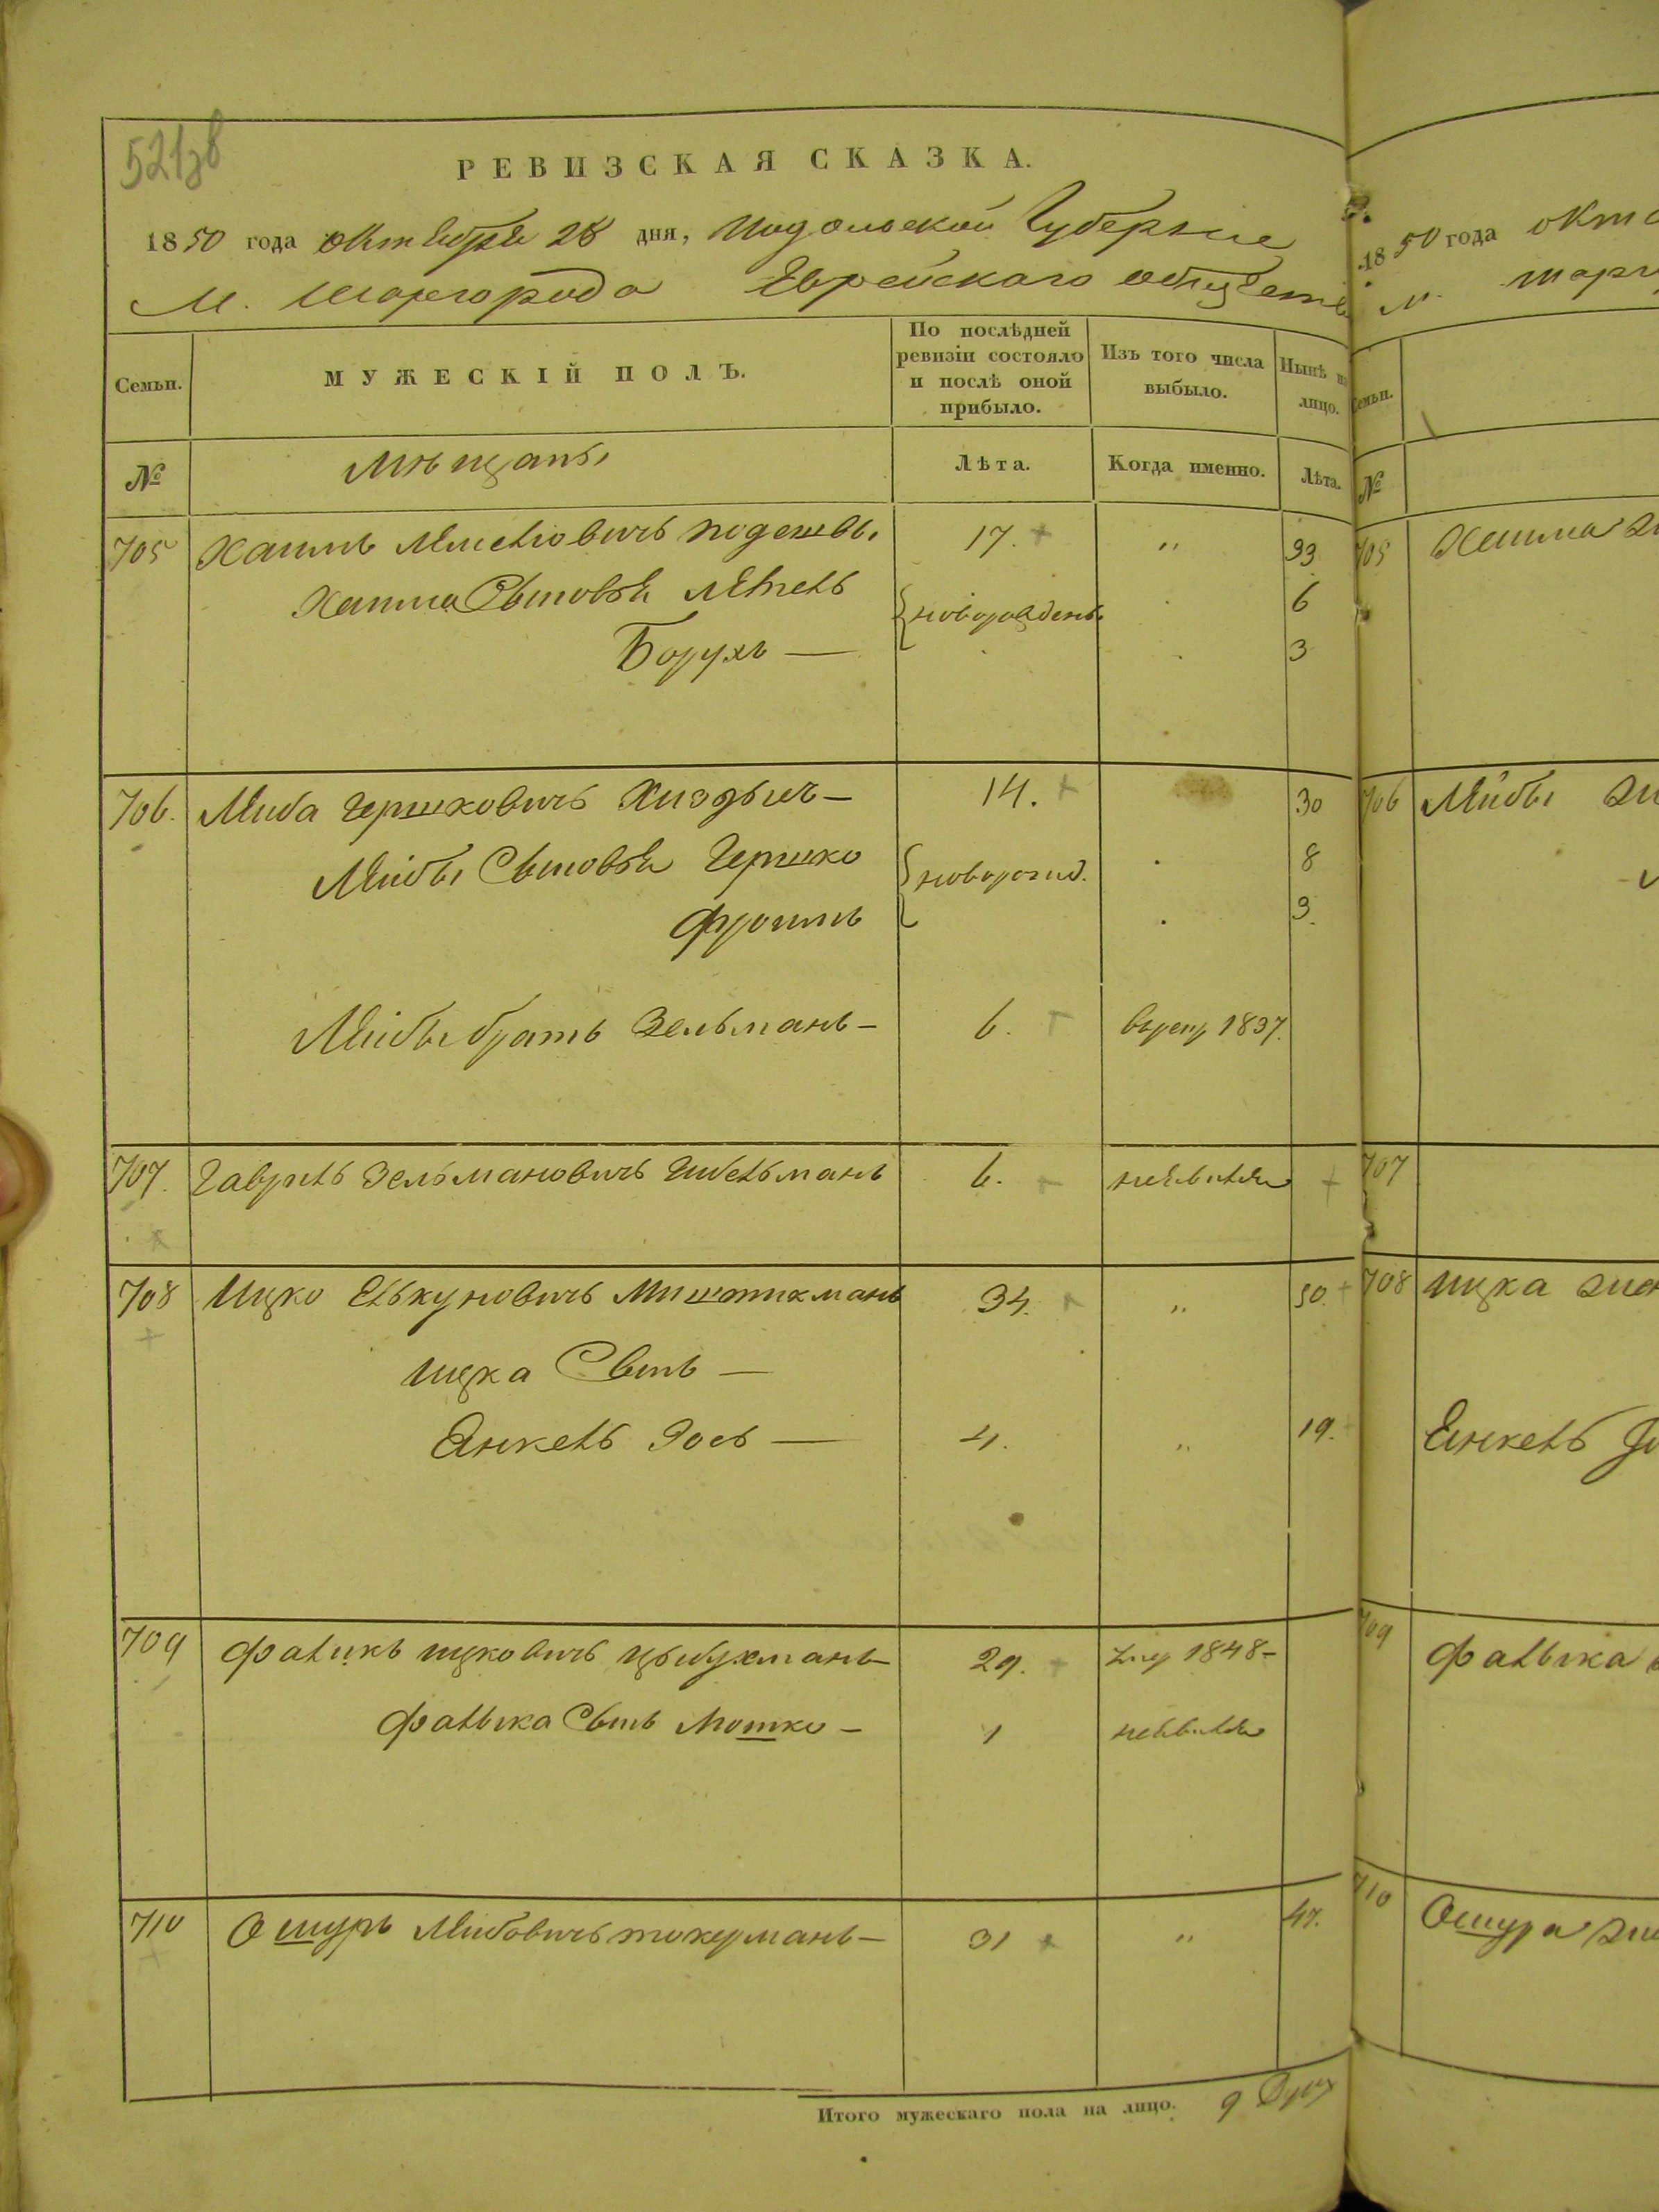 521зв
РЕВИЗСКАЯ СКАЗКА.
1850 года октября 28 дня, Подольской Губернии
М. Шаргорода Еврейскаго общества
Семьи.
МУЖЕСКІЙ ПОЛЪ.
По послѣдней ревизіи состояло и послѣ оной прибыло.
Изъ того числа выбыло.
Нынѣ на лицо.
№
Мѣщаны
Лѣта.
Когда именно.
Лѣта.
705 Хаимъ 17. " 33
Хаима Сыновья новорожден. 6
Борухъ — 3
706. Лейба Гершковичъ 14. 30
Лейбы Сыновья Гершко новорожд. 8
Фроимъ 3.
Лейбы братъ Зельманъ — 6. 1837.
707. Гаврилъ Зельмановичъ 6. неявился
708 Ицко Елькуновичъ 34. " 50.
Ицка Сынъ —
Янкель Іось — 4. " 19.
709 Фаликъ Ицковичъ 29. 1848 —
Фалыка Сынъ Мошко — 1 неявился
710 Ошуръ Лейбовичъ токерманъ — 31 " 47.
Итого мужескаго пола на лицо. 9 Душ
1850 года окт
м. Шарг
Семьи.
№
705 Хаима
706 Лейбы
707
708 Ицка
Янкель
709 Фалыка
710 Ошура